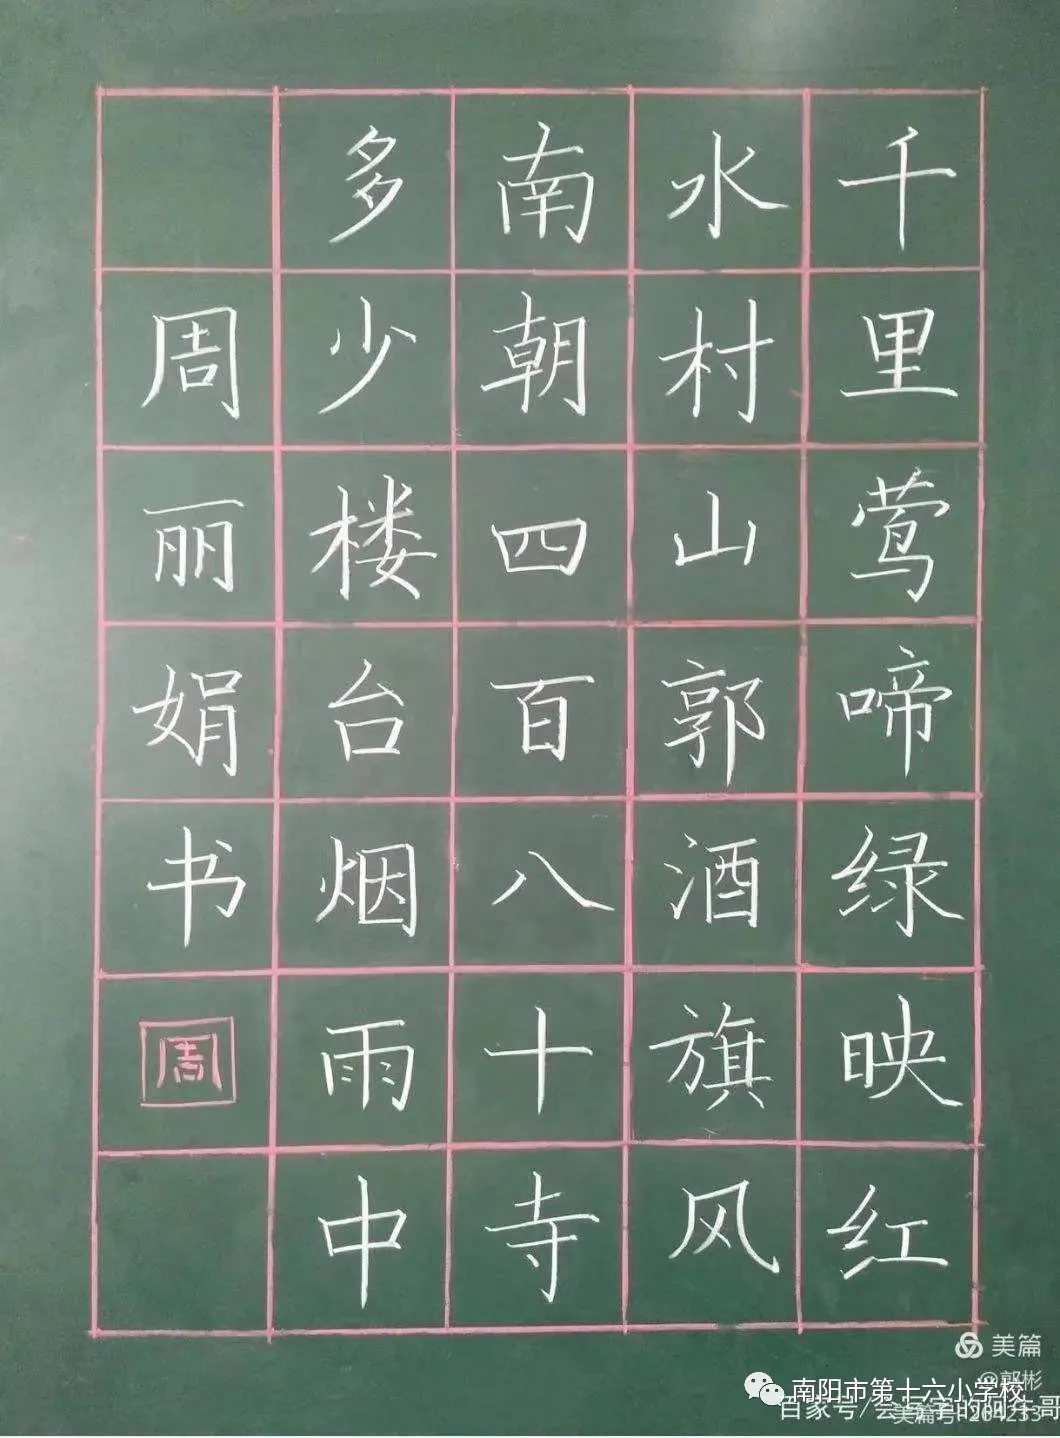 千里莺啼绿映红
水村山郭酒旗风
南朝四百八十寺
多少楼台烟雨中
周丽娟书
周
美篇
@郭彬
南阳市第十六小学校
百家号/
美篇号:204233